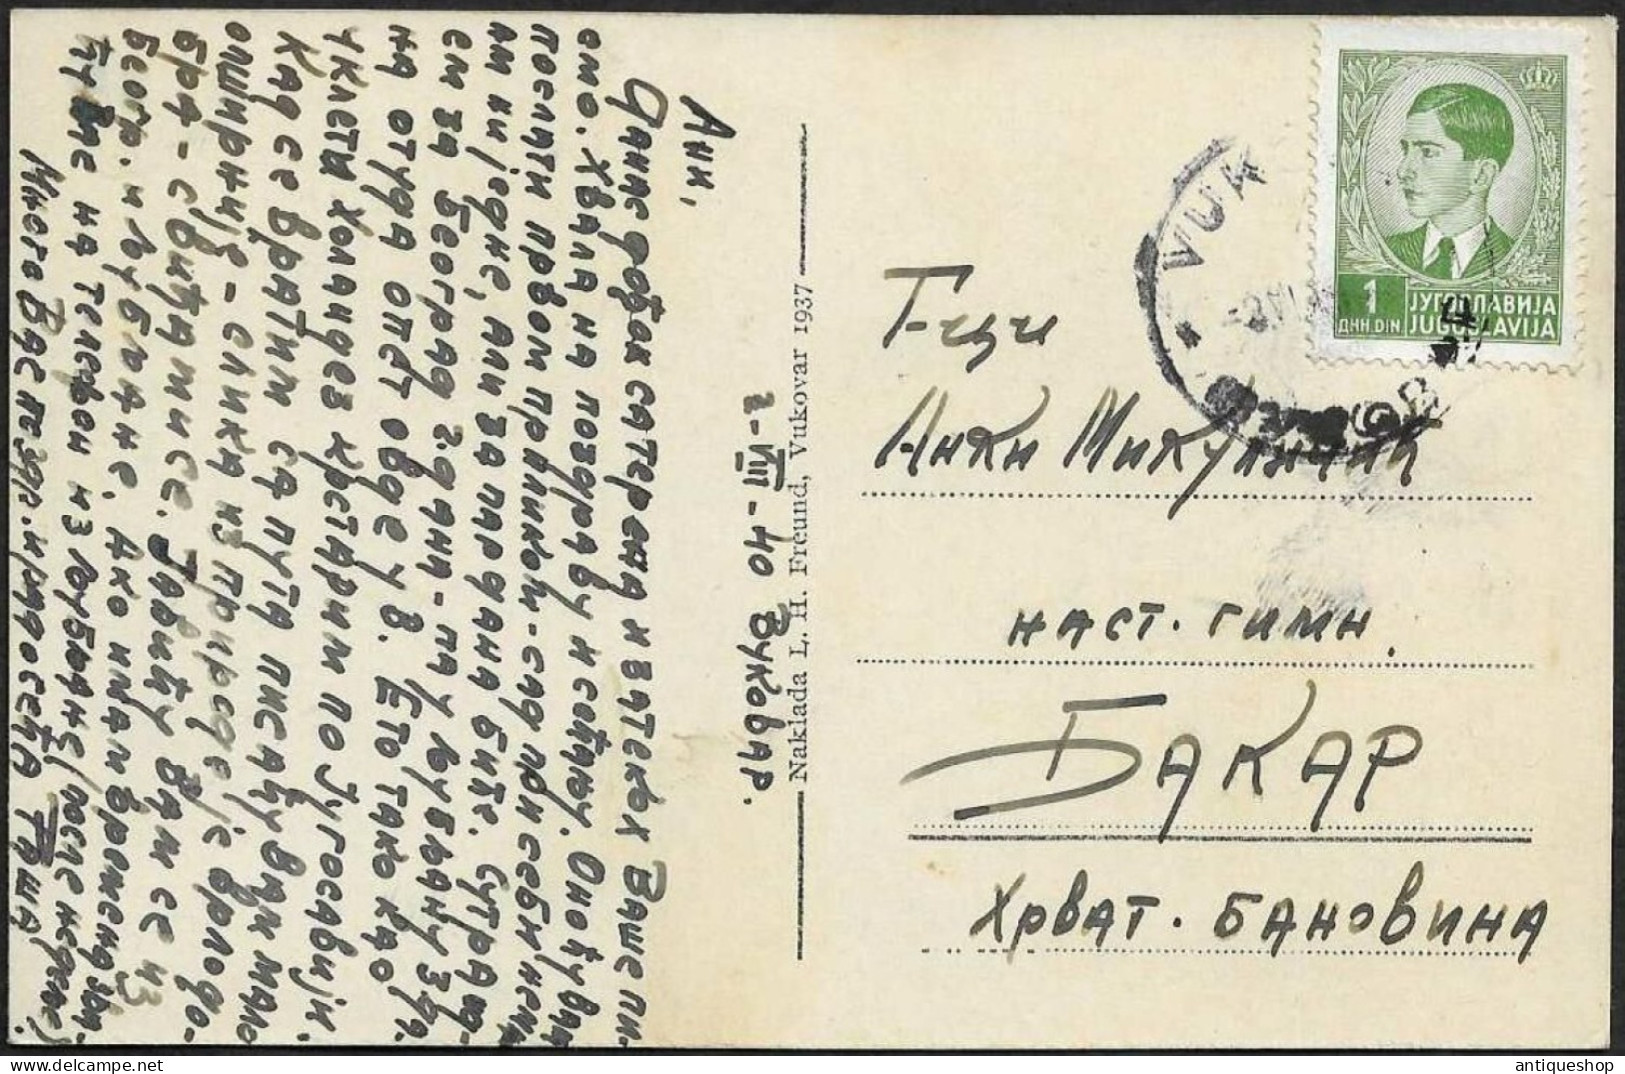 Ани,
Данас дођох са терена и затекох Ваше пи-
смо. Хвала на поздраву и сећању. Оно ћу Вам
послати првом приликом - сад при себи нема-
м ни једне, али за пар дана биће. Сутра ид-
ем за Београд 2 дана - па у Љубљану 3 дана
на отуда опет овде у В. Ето тако као
уклети Холандез крстарим по Југославији.
Кад се вратим са пута писаћу Вам мало
опширније - слика из природе је врло до-
бра - свиђа ми се. Јавићу Вам се из
Беогр. и Љубљане. Ако имам времена зва-
ћу Вас на телефон из Љубљане (после недеље).
Много Вас поздр. и радосећа Таша
2-VIII-40 Вуковар.
Naklada L. H. Freund, Vukovar 1937
VUK
1
ДИН. DIN
ЈУГОСЛАВИЈА
JUGOSLAVIJA
Г-ци
Анки Микуличић
наст. гимн.
БАКАР
Хрват. Бановина
antiqueshop